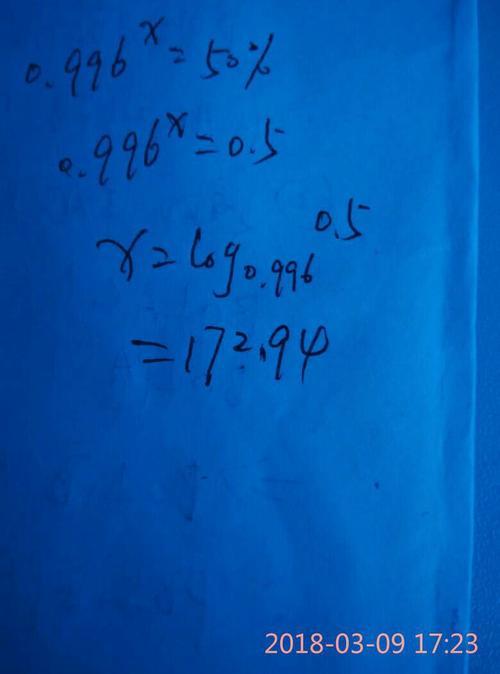 0.996^x = 50%
0.996^x = 0.5
x = log_0.996 0.5
= 172.94
2018-03-09 17:23